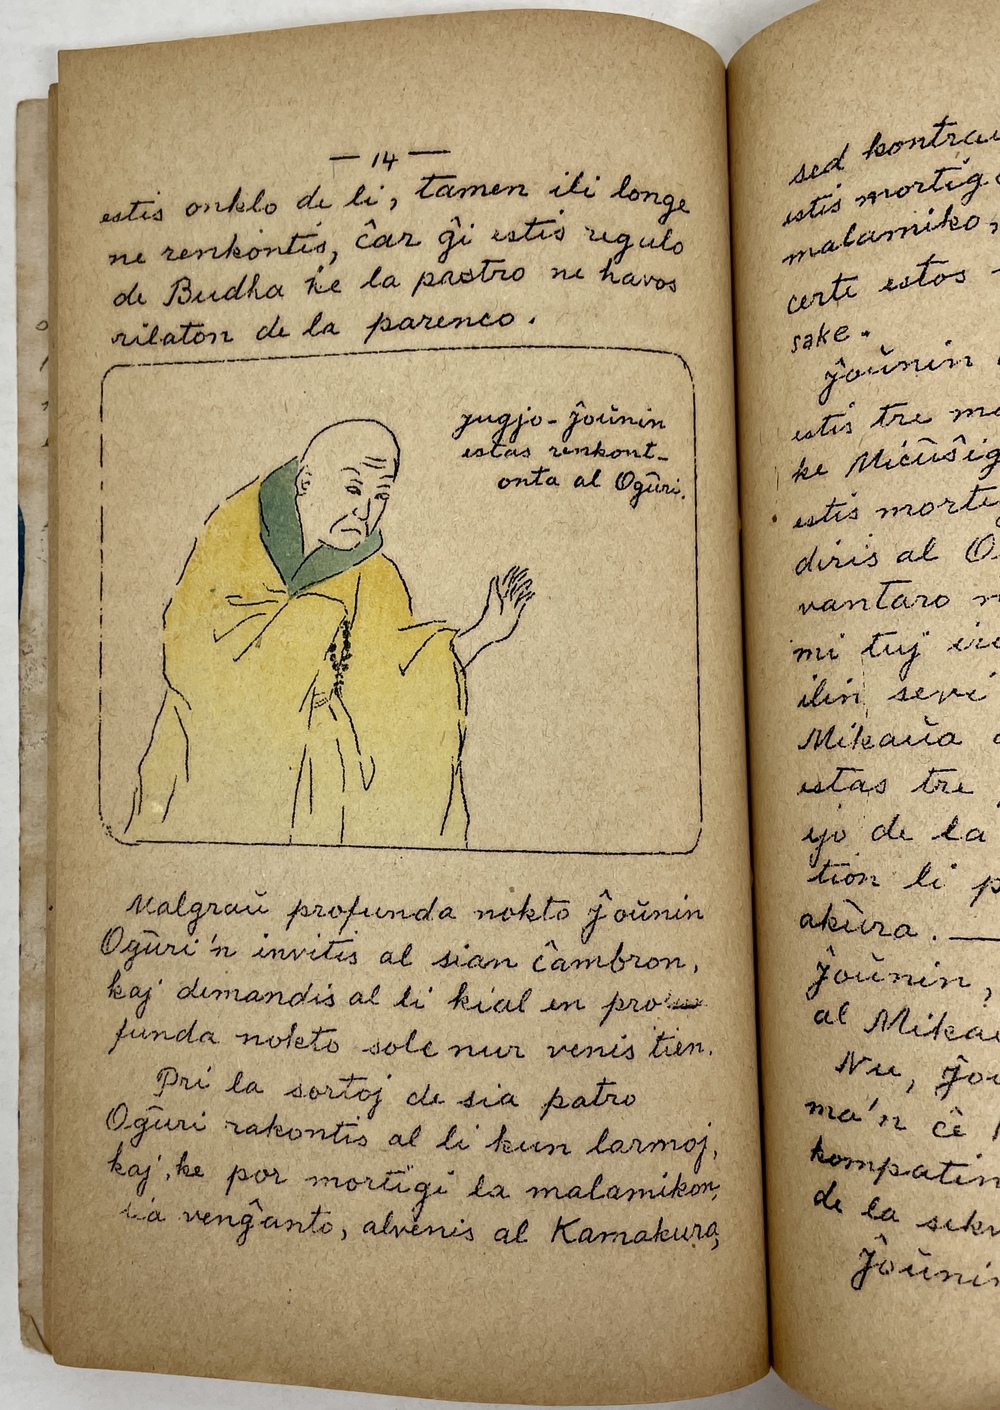 — 14 —
estis onklo de li, tamen ili longe
ne renkontis, ĉar ĝi estis regulo
de Budha ke la pastro ne havos
rilaton de la parenco.
Jugjo-Ĵoŭnin
estas renkont-
onta al Oĝuri.
Malgraŭ profunda nokto Ĵoŭnin
Oĝuri'n invitis al sian ĉambron,
kaj demandis al li kial en pro-
funda nokto sole nur venis tien.
Pri la sortoj de sia patro
Oĝuri rakontis al li kun larmoj,
kaj, ke por mortigi la malamikon,
venĝanto, alvenis al Kamakura,
sed
estis
malamiko,
certe estos
sake.
Ĵoŭnin
estis tre
ke
estis
diris al
vantaro
mi tuj
ilin
Mikaŭa
estas tre
de la
li
akŭra. —
Ĵoŭnin,
al
Nu,
ma'n ĉe
de la